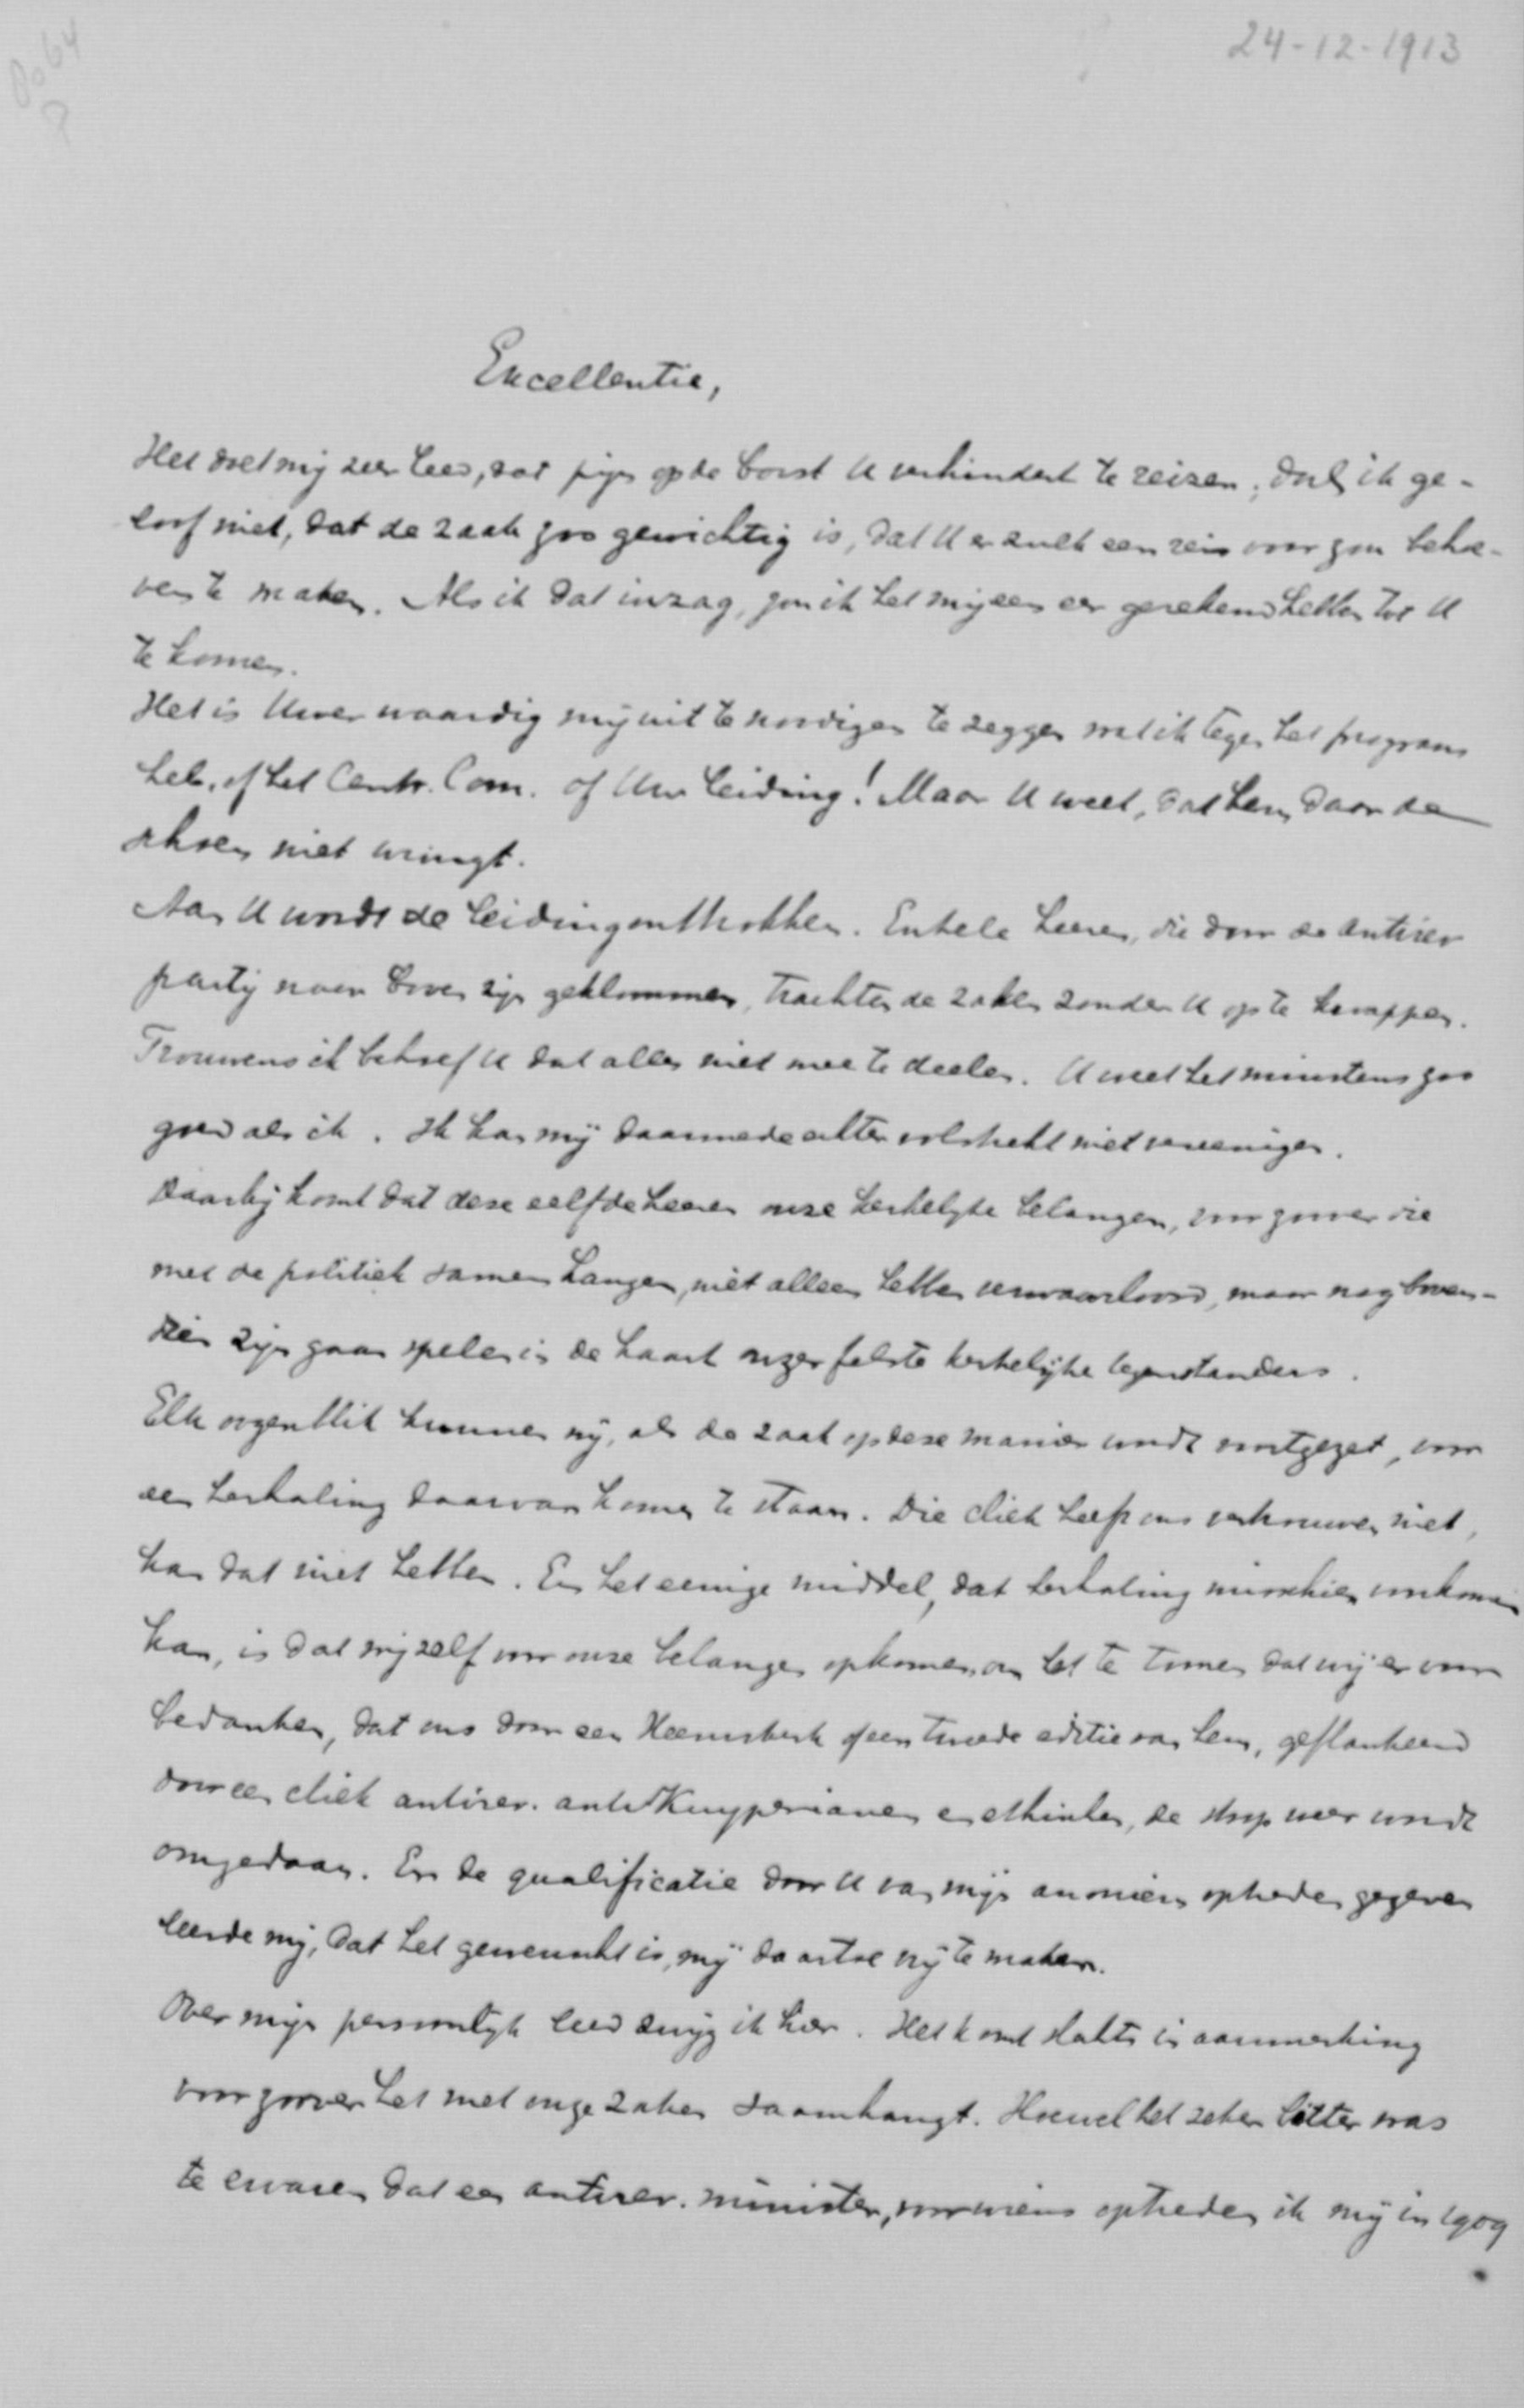 24-12-1913
Excellentie,
Het doet mij zeer leed, dat pijn op de borst U verhindert te reizen; doch ik ge-
loof niet, dat de zaak zoo gewichtig is, dat U er zulk een reis voor zou behoe-
ven te maken. Als ik dat inzag, zou ik het mij een eer gerekend hebben tot U
te komen.
Het is Uwer waardig mij uit te noodigen te zeggen wat ik tegen het program
heb, of het Centr. Com. of Uw leiding! Maar U weet, dat hem daar de
schoen niet wringt.
Aan U wordt de leiding onttrokken. Enkele heeren, die door de antirev
partij naar boven zijn geklommen, trachten de zaken zonder U op te knappen.
Trouwens ik behoef U dat alles niet mee te deelen. U weet het minstens zoo
goed als ik. Ik kan mij daarmede echter volstrekt niet vereenigen.
Daarbij komt dat deze zelfde heeren onze kerkelijke belangen, voor zoover die
met de politiek samenhangen, niet alleen hebben verwaarloosd, maar nog boven-
dien zijn gaan spelen in de kaart onzer felste kerkelijke tegenstanders.
Elk oogenblik kunnen wij, als de zaak op deze manier wordt voortgezet, voor
een herhaling daarvan komen te staan. Die cliek heeft ons vertrouwen niet,
kan dat niet hebben. En het eenige middel, dat herhaling misschien voorkomen
kan, is dat wij zelf voor onze belangen opkomen, om het te toonen dat wij er voor
bedanken, dat ons door een Heemskerk of een tweede editie van hem, geflankeerd
door een cliek antirev. anti-Kuyperianen en ethischen, de strop weer wordt
omgedaan. En de qualificatie door U van mijn anoniem optreden gegeven
leerde mij, dat het gewenscht is, mij daartoe vrij te maken.
Over mijn persoonlijk leed zwijg ik hier. Het komt slechts in aanmerking
voor zoover het met onze zaken saamhangt. Hoewel het zeker bitter was
te ervaren dat een antirev. minister, voor wiens optreden ik mij in 1909